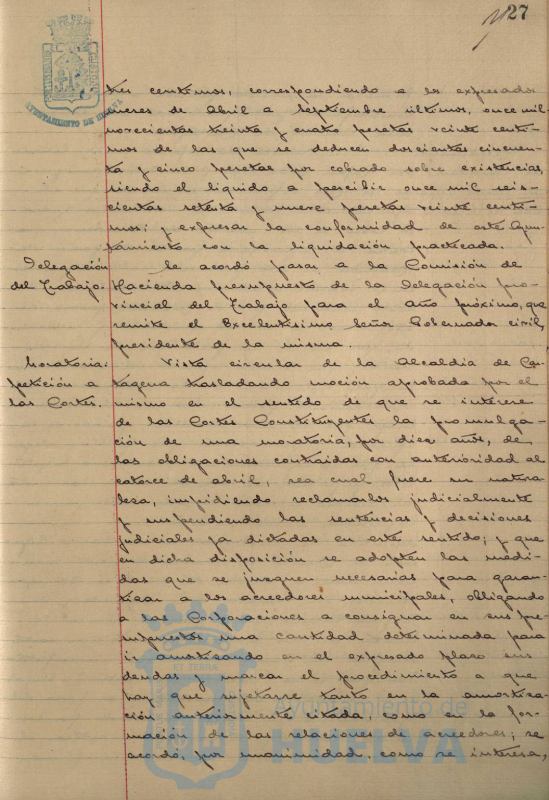 27
AYUNTAMIENTO DE HUELVA
tres centimos, correspondiendo a los expresados
meses de Abril a Septiembre ultimos, once mil
novecientas treinta y cuatro pesetas veinte centi-
mos de las que se deducen doscientas cincuen-
ta y cinco pesetas por cobrado sobre existencias,
siendo el liquido a percibir once mil seis-
cientas setenta y nueve pesetas veinte centi-
mos; y expresar la conformidad de este Ayun-
tamiento con la liquidación practicada.
Delegación
del Trabajo.
Se acordó pasar a la Comisión de
Hacienda presupuesto de la Delegación pro-
vincial del Trabajo para el año próximo, que
remite el Excelentisimo Señor Gobernador civil,
presidente de la misma.
Moratoria:
petición a
las Cortes.
Vista circular de la Alcaldia de Car-
tagena trasladando moción aprobada por el
mismo en el sentido de que se interese
de las Cortes Constituyentes la promulga-
ción de una moratoria, por diez años, de
las obligaciones contraidas con anterioridad al
catorce de abril, sea cual fuere su natura-
leza, impidiendo reclamarlos judicialmente
y suspendiendo las sentencias y decisiones
judiciales ya dictadas en este sentido; y que
en dicha disposición se adopten las medi-
das que se juzguen necesarias para garan-
tizar a los acreedores municipales, obligando
a las Corporaciones a consignar en sus pre-
supuestos una cantidad determinada para
ir amortizando en el expresado plazo sus
deudas y marcar el procedimiento a que
hay que sujetarse tanto en la amortiza-
ción anteriormente citada, como en la for-
mación de las relaciones de acreedores; se
acordó, por unanimidad, como se interesa,
Ayuntamiento de
HUELVA